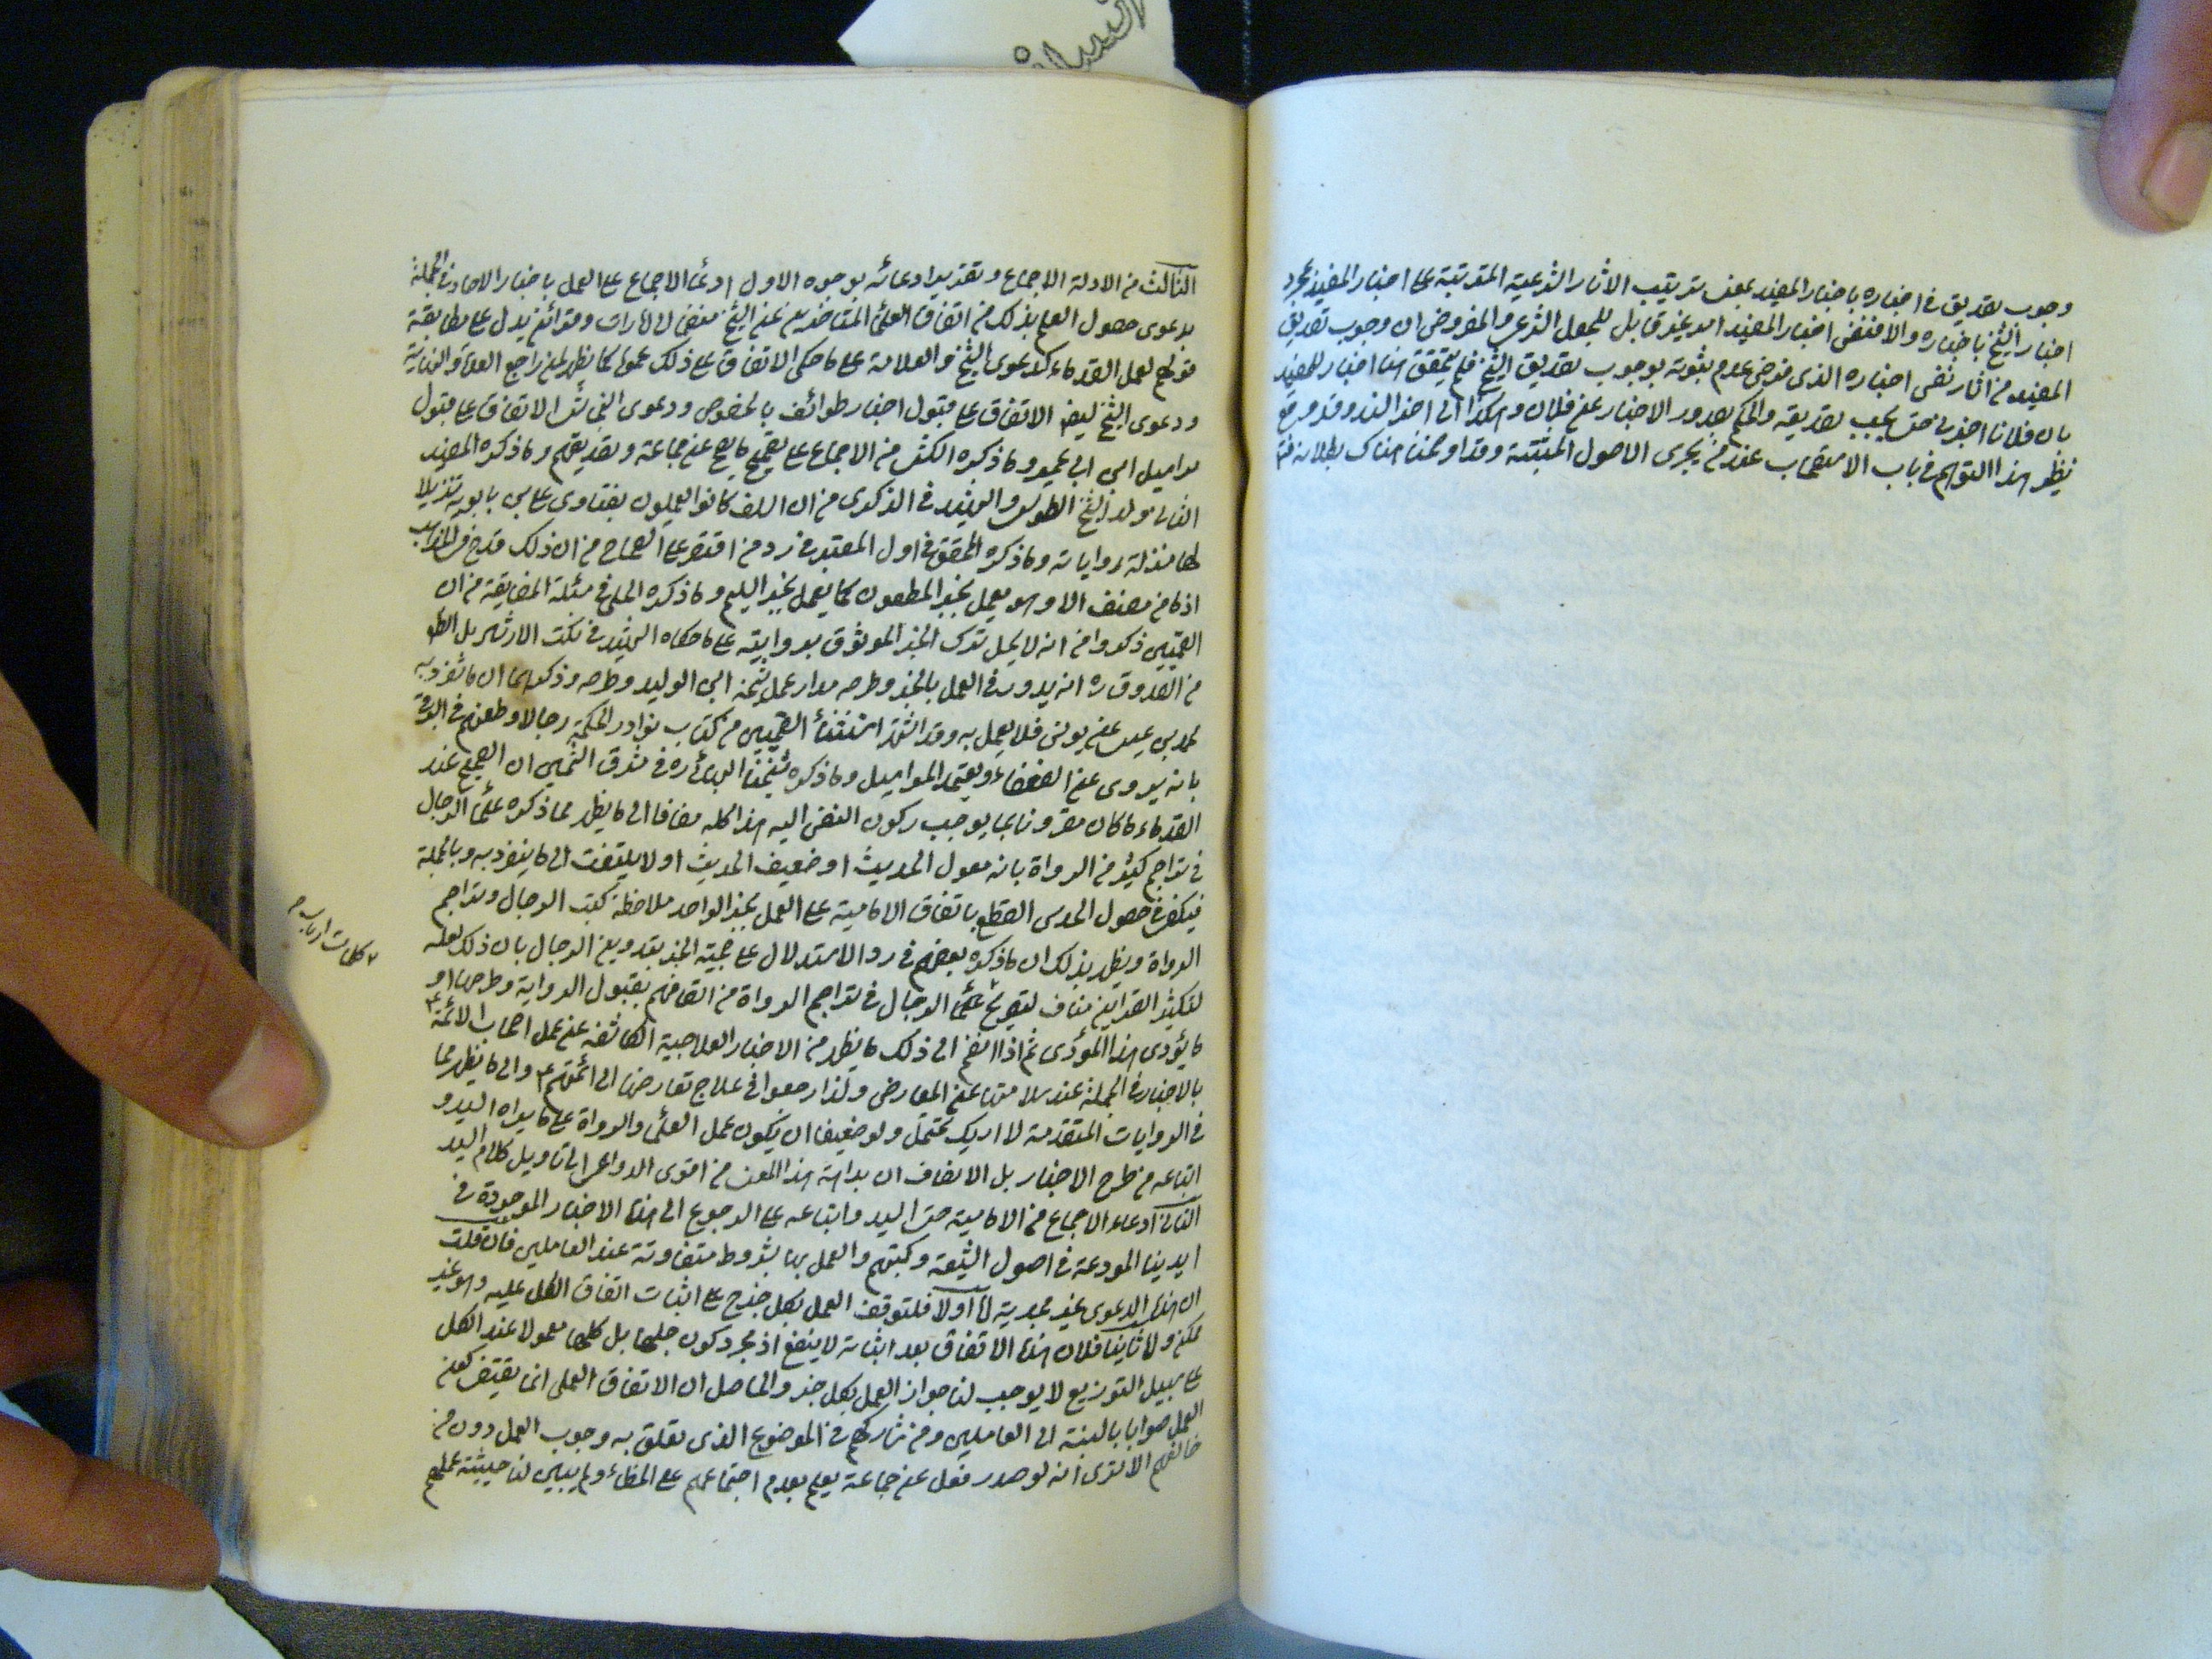 وجوب تصديق في اخباره باخبار المفيد بمعنى ترتيب الاثار الشرعية المترتبة على اخبار المفيد بمجرد
اخبار الشيخ باخباره والا فنفس اخبار المفيد امر غير قابل للجعل الشرعي والمفروض ان وجوب تصديق
المفيد من اثار نفس اخباره الذي فرض عدم ثبوته بوجوب تصديق الشيخ فلم يتحقق هنا اخبار للمفيد
بان فلانا اخبرني حتى يجب تصديقه والحكم بصدور الاخبار عن فلان وهكذا الى اخر السند وقد وقع
نظير هذا التوهم في باب الاستصحاب عند من يجرى الاصول المثبتة وقد اوضحنا هناك بطلانه فتم
الثالث من الادلة الاجماع وتقرير ادعائه بوجوه الاول ادعاء الاجماع على العمل باخبار الاحاد في الجملة
بدعوى حصول العلم بذلك من اتفاق العلماء المتاخرين عن الشيخ منضما الى امارات وقرائن يدل على مطابقة
قولهم لعمل القدماء كدعوى الشيخ والعلامة على ما حكى الاتفاق على ذلك عموما كما يظهر لمن راجع العدة والنهاية
ودعوى الشيخ ايضا الاتفاق على قبول اخبار طوائف بالخصوص ودعوى النجاشي الاتفاق على قبول
مراسيل ابن ابي عمير وما ذكره الكشي من الاجماع على تصحيح ما يصح عن جماعة وتصديقهم وما ذكره المفيد
الثاني ولد الشيخ الطوسي والشهيد في الذكرى من ان السلف كانوا يعملون بفتاوى علي بن بابويه تنزيلا
لها منزلة رواياته وما ذكره المحقق في اول المعتبر في رد من اقتصر على الصحاح من ان ذلك قدح في المذهب
اذ ما من مصنف الا وهو يعمل بخبر المطعون كما يعمل بخبر السليم وما ذكره الحلي في مسئلة المضايقة من ان
القميين ذكروا من انه لا يحل ترك الخبر الموثوق بروايته على ما حكاه الشهيد في نكت الارشاد بل الظ
من الصدوق ره انه يدور في العمل بالخبر وطرحه مدار عمل شيخه ابن الوليد وطرحه وذكر ايضا ان ما تفرد به
محمد بن عيسى عن يونس فلا يعمل به وقد اشتهر استثناء القميين من كتاب نوادر الحكمة رجالا وطعنهم في البرقي
بانه يروى عن الضعفاء ويعتمد المراسيل وما ذكره شيخنا البهائي ره في مشرق الشمسين ان الصحيح عند
القدماء ما كان مقرونا بما يوجب ركون النفس اليه هذا كله مضافا الى ما يظهر مما ذكره علماء الرجال
في تراجم كثير من الرواة بانه معول الحديث او ضعيف الحديث او لا يلتفت الى ما ينفرد به وبالجملة
فيكفى في حصول الحدس القطعي باتفاق الامامية على العمل بخبر الواحد ملاحظة كتب الرجال وتراجم
الرواة ويظهر بذلك ان ما ذكره بعضهم في رد الاستدلال على حجية الخبر بتدوين الرجال بان ذلك لعله
لتكثير القراين مناف لتصريح علماء الرجال في تراجم الرواة من اتصافهم بقبول الرواية وطرحها او
كلمات ارباب م
ما يؤدى هذا المؤدى ثم اذا انضم الى ذلك ما يظهر من الاخبار العلاجية الكاشفة عن عمل اصحاب الائمة ع
بالاخبار في الجملة عند سلامتها عن المعارض ولذا رجعوا في علاج تعارضها الى ائمتهم ع والى ما يظهر مما
في الروايات المتقدمة لا اريك تحتمل ولو ضعيفا ان يكون عمل العلماء والرواة على ما يراه السيد و
اتباعه من طرح الاخبار بل الانصاف ان بداهة هذا المعنى من اقوى الدواعي الى تاويل كلام السيد
الثاني ادعاء الاجماع من الامامية حتى السيد واتباعه على الرجوع الى هذه الاخبار الموجودة في
ايدينا المودعة في اصول الشيعة وكتبهم والعمل بها بشروط متفاوتة عند العاملين فان قلت
ان هذه الدعوى غير مجدية لنا اولا فلتوقف العمل بكل خبر ح على اثبات اتفاق الكل عليه وهو غير
ممكن ولا ثانيا فلان هذا الاتفاق بعد اثباته لا ينفع اذ مجرد كون جلها بل كلها معمولا عند الكل
على سبيل التوزيع لا يوجب لنا جواز العمل بكل خبر والحاصل ان الاتفاق العملي انما يقتضى كون
العمل صوابا بالنسبة الى العاملين ومن شاركهم في الموضوع الذي تعلق به وجوب العمل دون من
خالفهم الا ترى انه لو صدر فعل عن جماعة يعلم بعدم اجتماعهم على الخطاء ولم يتبين لنا حيثية عملهم